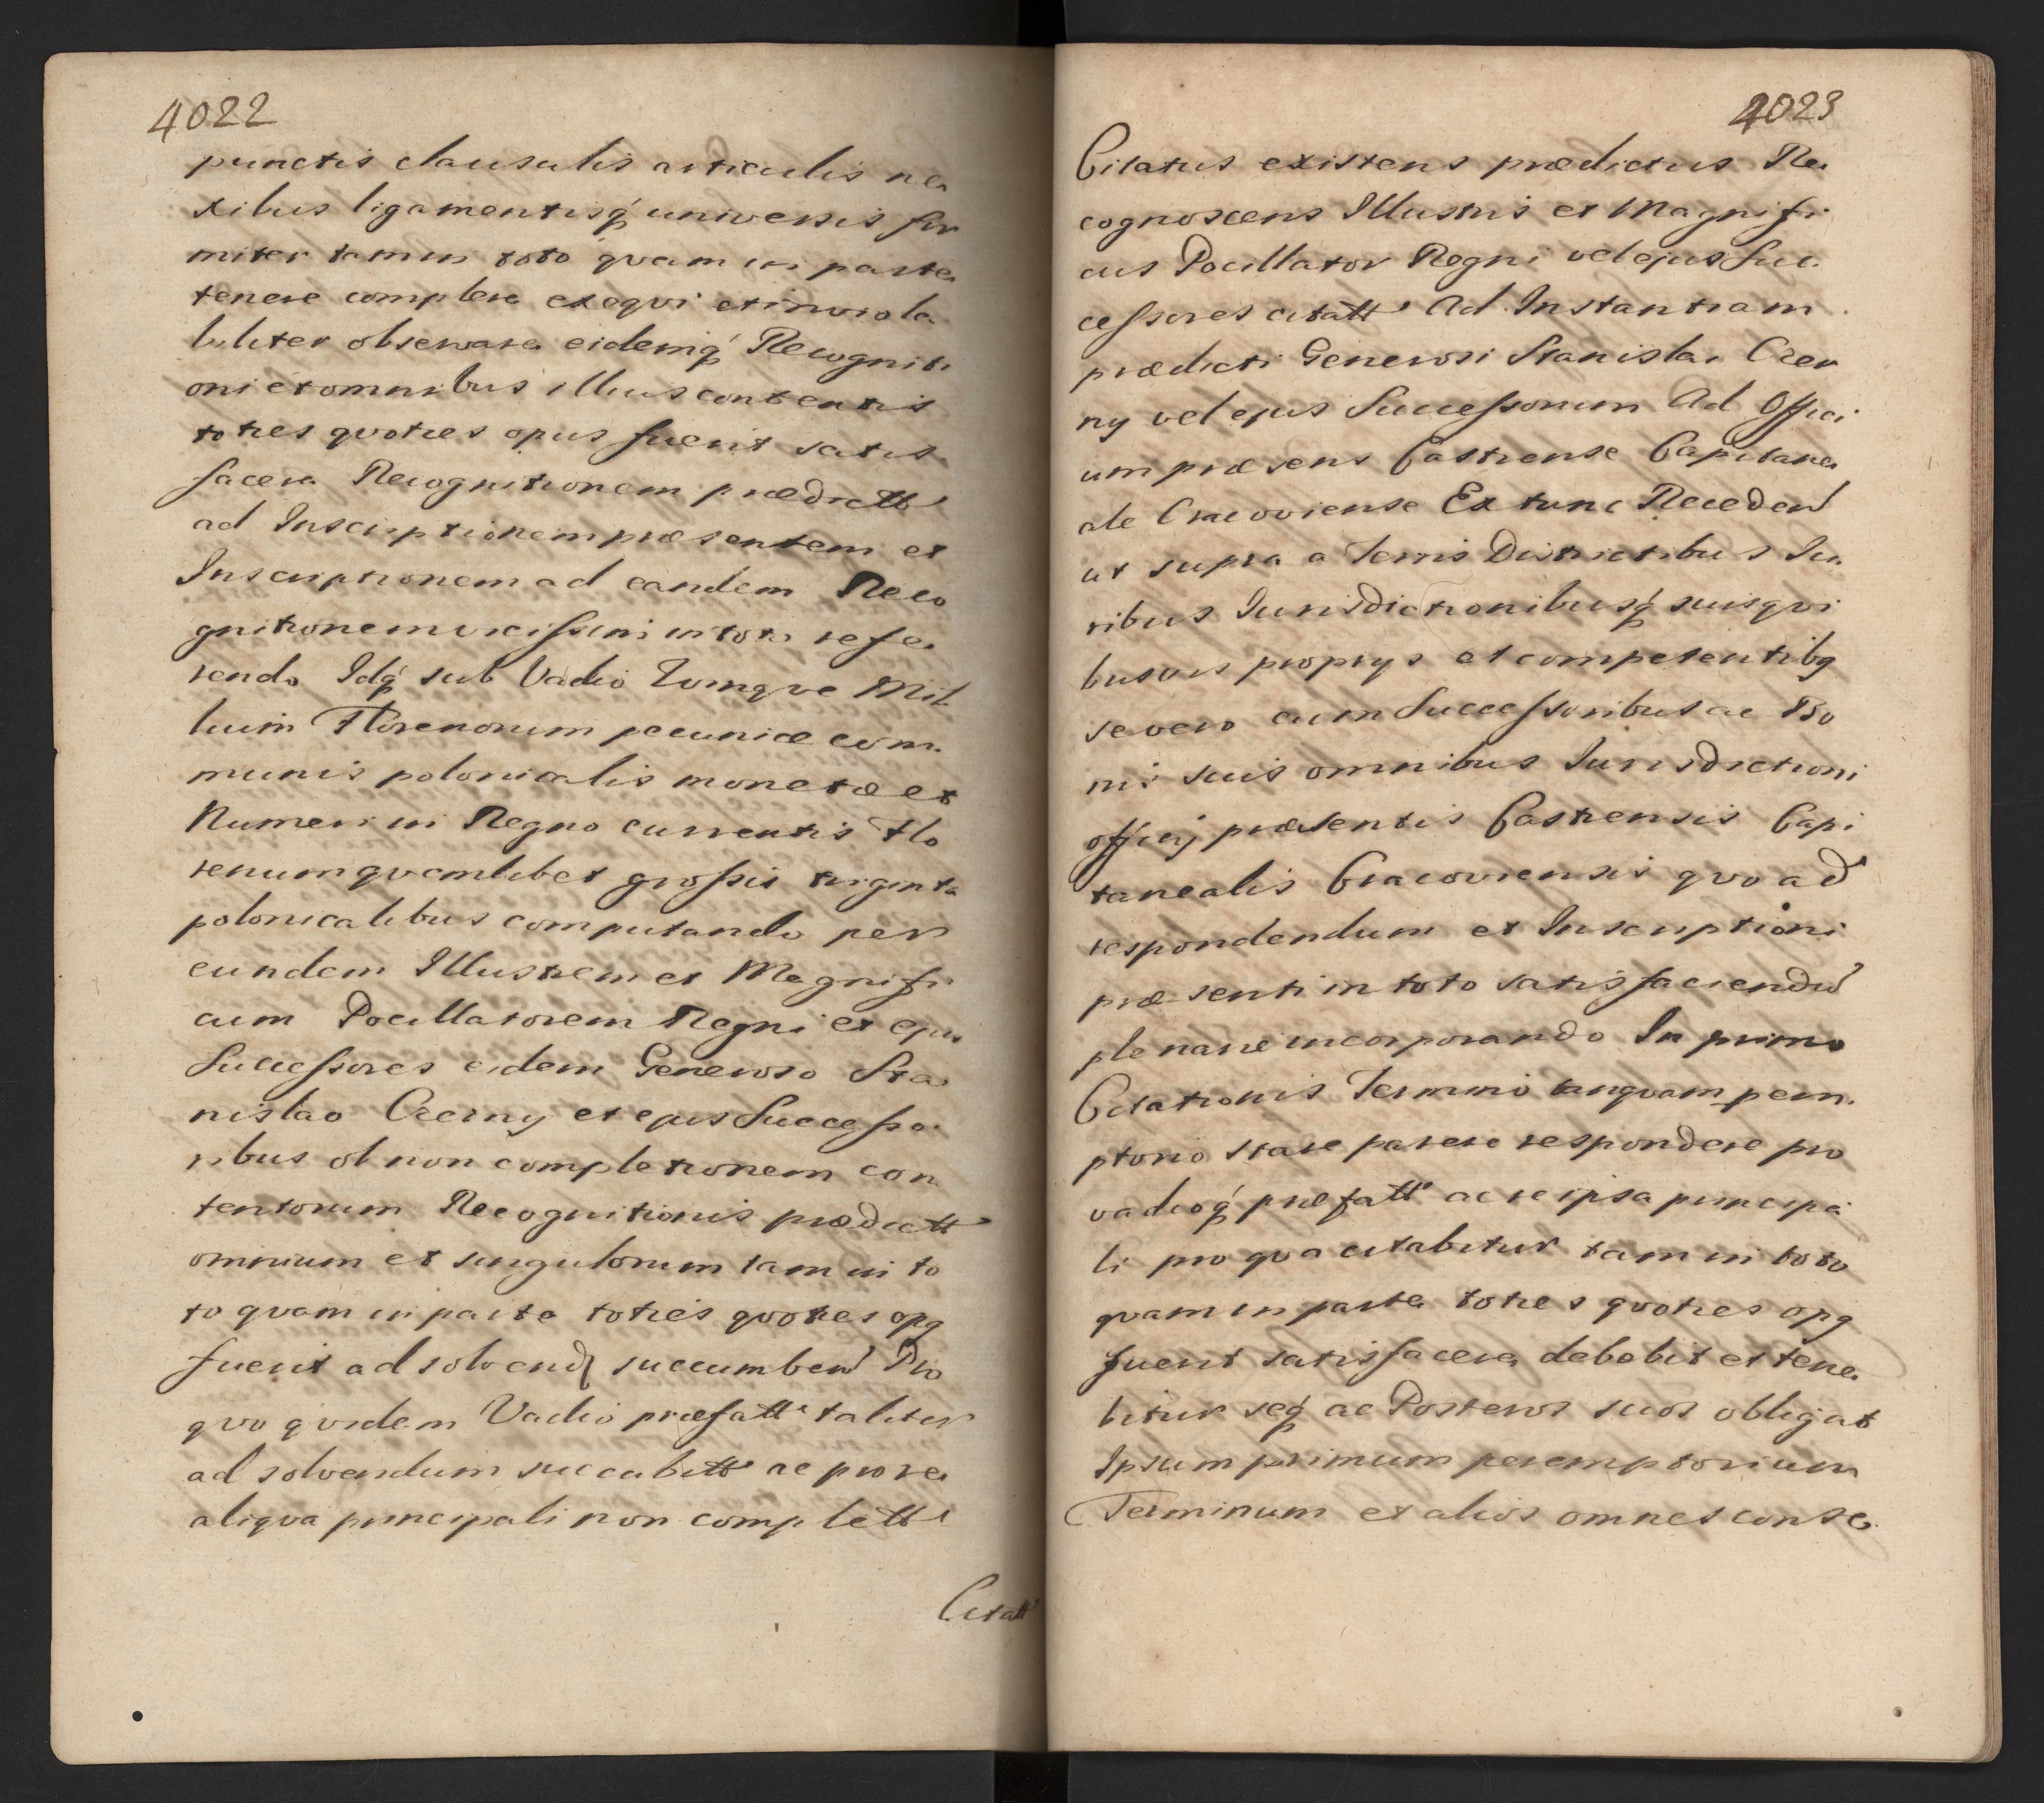 4022
punctis clausulis articulis ne
xibus ligamentisq́ universis fir
miter tam in toto qvam in parte
tenere complere exeqvi et inviola
biliter observare eidemq́ Recogniti
oni et omnibus illius contentis
toties qvoties opus fuerit satis
facere Recognitionem prædictt
ad Inscriptionem præsentem et
Inscriptionem ad eandem Reco
gnitionem vicissim in toto refe
rendo Idq́ sub Vadio Mil
lium Florenorum pecuniæ com
munis polonicalis monetæ et
Numeri in Regno currentis Flo
renum qvemlibet grossis triginta
polonicalibus computando per
eundem Illustrem et Magnifi
cum Pocillatorem Regni et ejus
Successores eidem Generoso Sta
nislao Czerny et ejus Successo
ribus ob non completionem con
tentorum Recognitionis prædictt
omnium et singulorum tam in to
to qvam in parte toties qvoties opq
fuerit ad solvend succumben Pro
qvo qvidem Vadio præfatt taliter
ad solvendum succubitt ac pro re
aliqva principali non complett
Citatt
4023
Citatus existens prædictus Re
cognoscens Illustris et Magnifi
cus Pocillator Regni vel ejus Suc
cessores citatt Ad Instantiam
prædicti Generosi Stanislai Czer
ny vel ejus Successorum Ad Offici
um præsens Castrense Capitane
ale Cracoviense Ex tunc Receden
ut supra a Terris Districtibus Ju
ribus Jurisdictionibusq́ suis qvi
busvis proprys et competentibq
se vero cum Successoribus ac Bo
nis suis omnibus Jurisdictioni
officij præsentis Castrensis Capi
tanealis Cracoviensis qvo ad
respondendum et Inscriptioni
præsenti in toto satisfaciendu
plenarie incorporando In primo
Citationis Termino tanqvam perem
ptorio stare parere respondere pro
vadioq́ præfatt ac re ipsa principa
li pro qva citabitur tam in toto
qvam in parte toties qvoties opq
fuerit satisfacere debebit et tene
bitur seq́ ac Posteros suos obligat
Ipsum primum peremptorium
Terminum et alios omnes conse